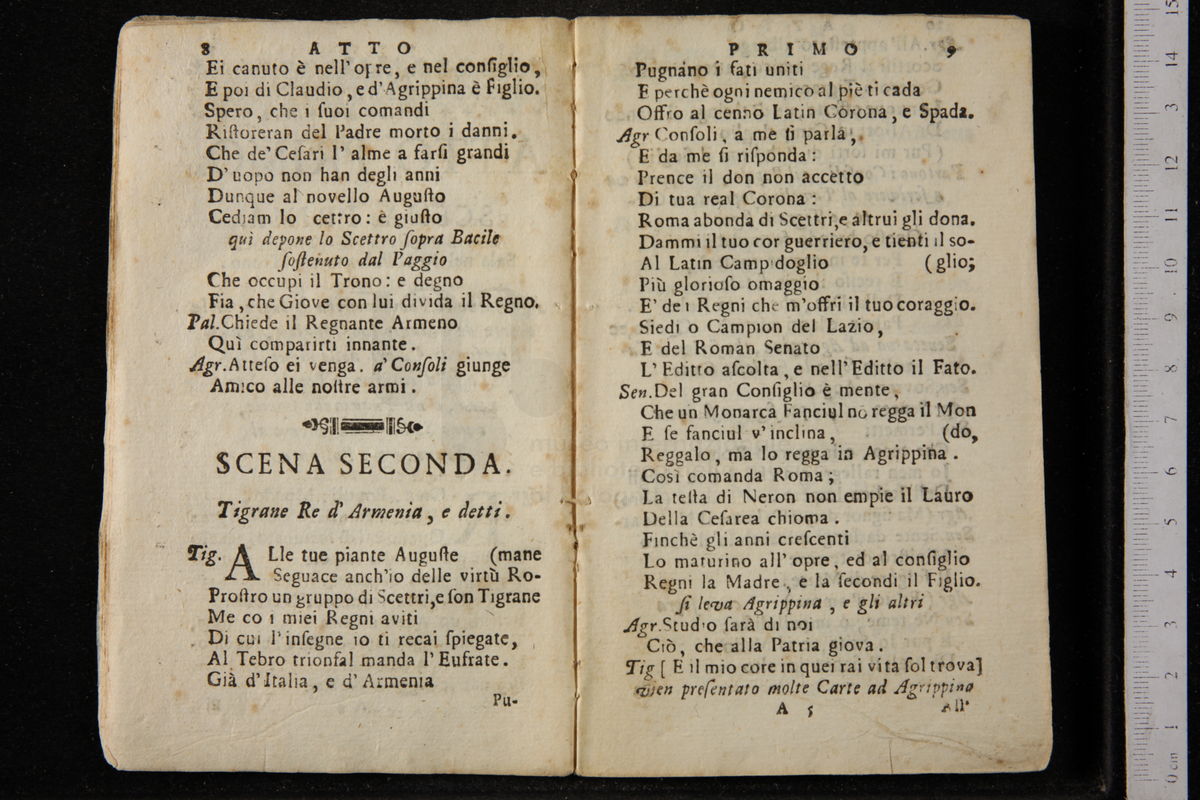 8 ATTO
Ei canuto è nell' opre, e nel conſiglio,
E poi di Claudio, e d' Agrippina è Figlio.
Spero, che i ſuoi comandi
Riſtoreran del Padre morto i danni.
Che de' Ceſari l' alme a farſi grandi
D' uopo non han degli anni
Dunque al novello Auguſto
Cediam lo cettro: è giuſto
quì depone lo Scettro ſopra Bacile
ſoſtenuto dal Paggio
Che occupi il Trono: e degno
Fia, che Giove con lui divida il Regno.
Pal. Chiede il Regnante Armeno
Quì comparirti innante.
Agr. Atteſo ei venga. a' Conſoli giunge
Amico alle noſtre armi.
SCENA SECONDA.
Tigrane Re d' Armenia, e detti.
Tig. ALle tue piante Auguſte (mane
Seguace anch'io delle virtù Ro-
Proſtro un gruppo di Scettri, e ſon Tigrane
Me co i miei Regni aviti
Di cui l' inſegne io ti recai ſpiegate,
Al Tebro trionfal manda l' Eufrate.
Già d' Italia, e d' Armenia
Pu-
PRIMO 9
Pugnano i fati uniti
E perchè ogni nemico al piè ti cada
Offro al cenno Latin Corona, e Spada.
Agr Conſoli, a me ſi parla,
E da me ſi riſponda:
Prence il don non accetto
Di tua real Corona:
Roma abonda di Scettri, e altrui gli dona.
Dammi il tuo cor guerriero, e tienti il so-
Al Latin Camp doglio (glio;
Più glorioſo omaggio
E' de i Regni che m'offri il tuo coraggio.
Siedi o Campion del Lazio,
E del Roman Senato
L' Editto aſcolta, e nell' Editto il Fato.
Sen. Del gran Conſiglio è mente,
Che un Monarca Fanciul no regga il Mon
E ſe fanciul v' inclina, (do,
Reggalo, ma lo regga in Agrippina.
Così comanda Roma;
La teſta di Neron non empie il Lauro
Della Ceſarea chioma.
Finchè gli anni creſcenti
Lo maturino all' opre, ed al conſiglio
Regni la Madre, e la ſecondi il Figlio.
ſi leva Agrippina, e gli altri
Agr. Studio ſarà di noi
Ciò, che alla Patria giova.
Tig [ E il mio core in quei rai vita ſol trova]
vien preſentato molte Carte ad Agrippina
A 5 All'